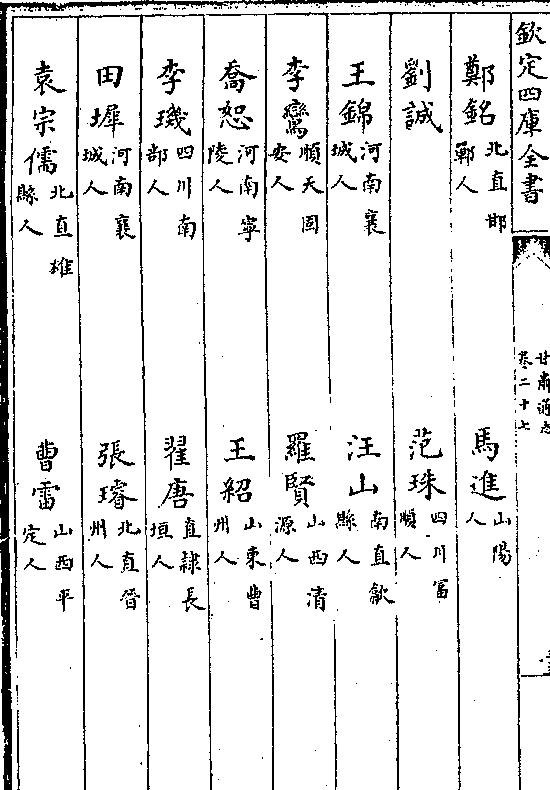 欽定四庫全書
甘肅通志
卷二十七
鄭銘北直邯鄲人
馬進山陽人
劉誠
范珠四川富順人
王錦河南襄城人
汪山南直歙縣人
李鸞順天固安人
羅賢山西清源人
喬恕河南寧陵人
王紹山東曹州人
李璣四川南部人
翟唐直隸長垣人
田墀河南襄城人
張璿北直晉州人
袁宗儒北直雄縣人
曹雷山西平定人